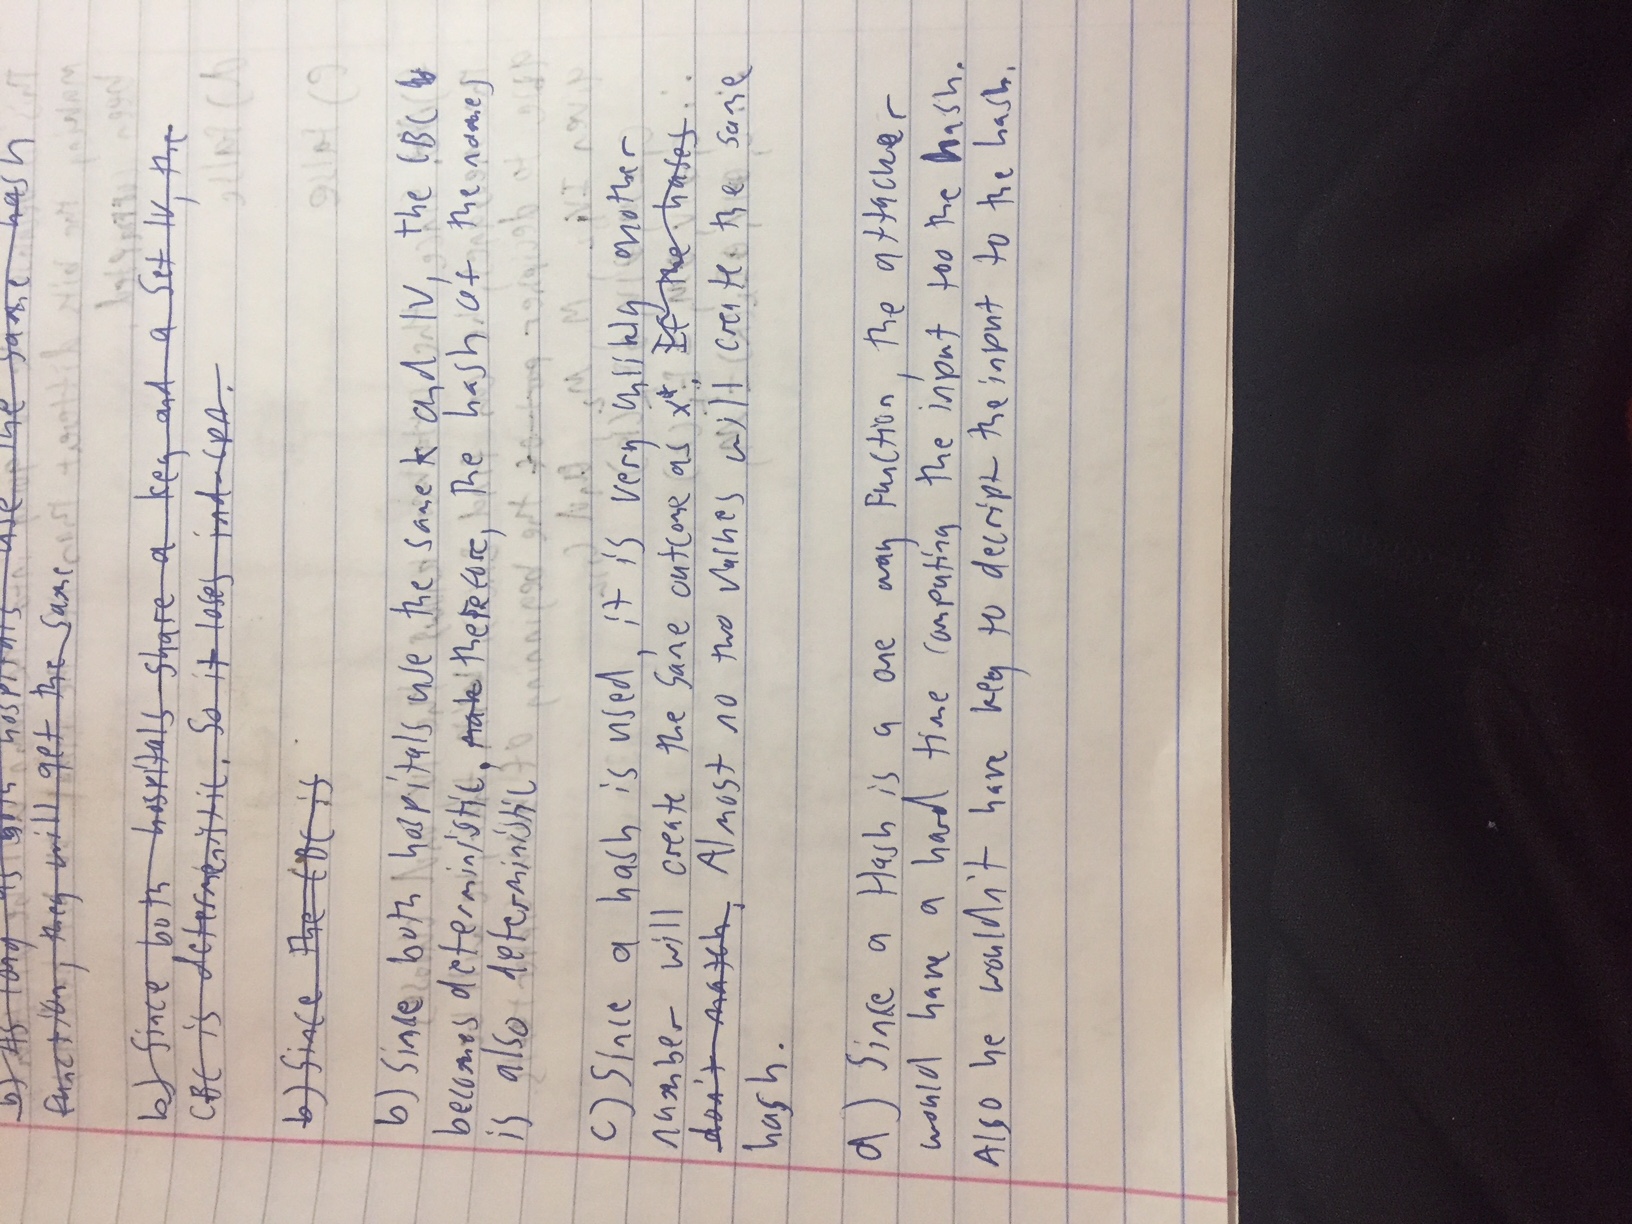 b) As long as both hospitals use the same hash
function, they will get the same
b) Since both hospitals share a key and a Set IV, the
CBC is determenistic. So it loses ind-cpa.
b) Since the CBC is
b) Since both hospitals use the same k and IV, the CBC
becomes deterministic, therefore, the hash of the names
is also deterministic
c) Since a hash is used, it is very unlikly another
number will create the same outcome as x*. If the hases
don't match, Almost no two values will create the same
hash.
d) Since a Hash is a one way function, the attacker
would have a hard time computing the input too the hash.
Also he wouldn't have key to decript the input to the hash.